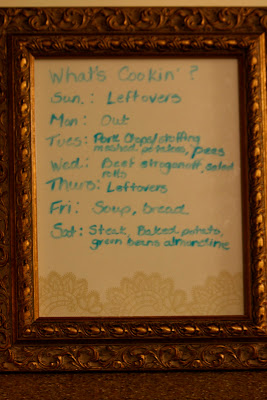 What's Cookin'?
Sun.: Leftovers
Mon: Out
Tues: Pork Chops/stuffing
mashed potatoes, peas
Wed: Beef stroganoff, salad
rolls
Thurs: Leftovers
Fri: Soup, bread
Sat: Steak, Baked potato,
green beans almondine